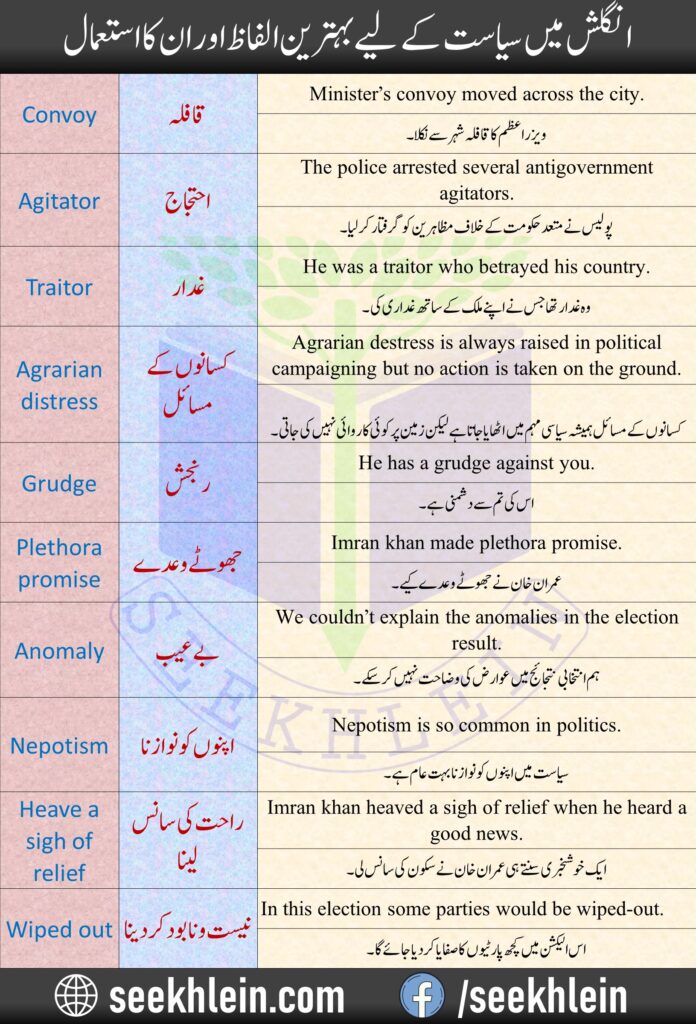 انگلش میں سیاست کے لیے بہترین الفاظ اور ان کا استعمال
Convoy
قافلہ
Minister’s convoy moved across the city.
ویزراعظم کا قافلہ شہر سے نکلا۔
Agitator
احتجاج
The police arrested several antigovernment
agitators.
پولیس نے متعد حکومت کے خلاف مظاہرین کو گرفتار کر لیا۔
Traitor
غدار
He was a traitor who betrayed his country.
وہ غدار تھا جس نے اپنے ملک کے ساتھ غداری کی۔
Agrarian
distress
کسانوں کے
مسائل
Agrarian destress is always raised in political
campaigning but no action is taken on the ground.
کسانوں کے مسائل ہمیشہ سیاسی مہم میں اٹھایا جاتا ہے لیکن زمین پر کوئی کاروائی نہیں کی جاتی۔
Grudge
رنجش
He has a grudge against you.
اس کی تم سے دشمنی ہے۔
Plethora
promise
جھوٹے وعدے
Imran khan made plethora promise.
عمران خان نے جھوٹے وعدے کیے۔
Anomaly
بے عیب
We couldn’t explain the anomalies in the election
result.
ہم انتخابی نتجائج میں عوارض کی وضاحت نہیں کر سکے۔
Nepotism
اپنوں کو نوازنا
Nepotism is so common in politics.
سیاست میں اپنوں کو نوازنا بہت عام ہے۔
Heave a
sigh of
relief
راحت کی سانس
لینا
Imran khan heaved a sigh of relief when he heard a
good news.
ایک خوشخبری سنتے ہی عمران خان نے سکون کی سانس لی۔
Wiped out
نیست و نابود کر دینا
In this election some parties would be wiped-out.
اس الیکشن میں کچھ پارٹیوں کا صفایا کر دیا جائے گا۔
SEEKHLEIN
seekhlein.com
f /seekhlein